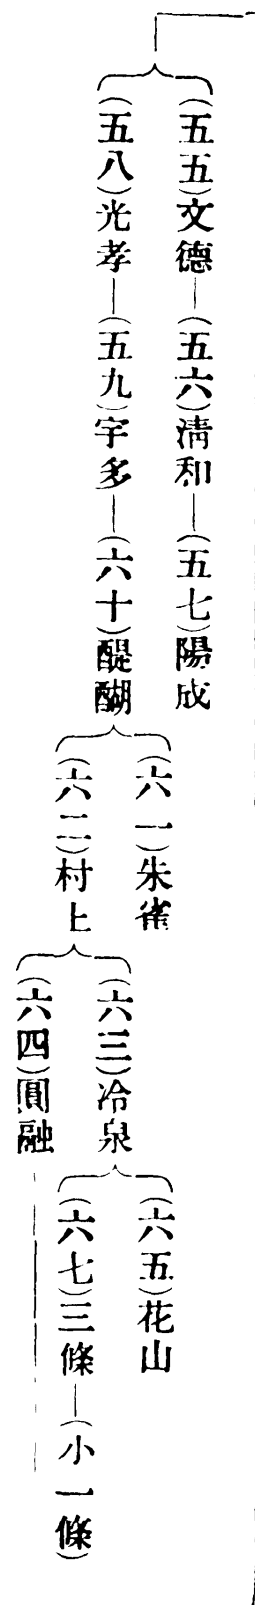 （五五）文德―（五六）清和―（五七）陽成
（五八）光孝―（五九）宇多―（六十）醍醐
（六一）朱雀
（六二）村上
（六三）冷泉
（六四）圓融
（六五）花山
（六七）三條―（小一條）